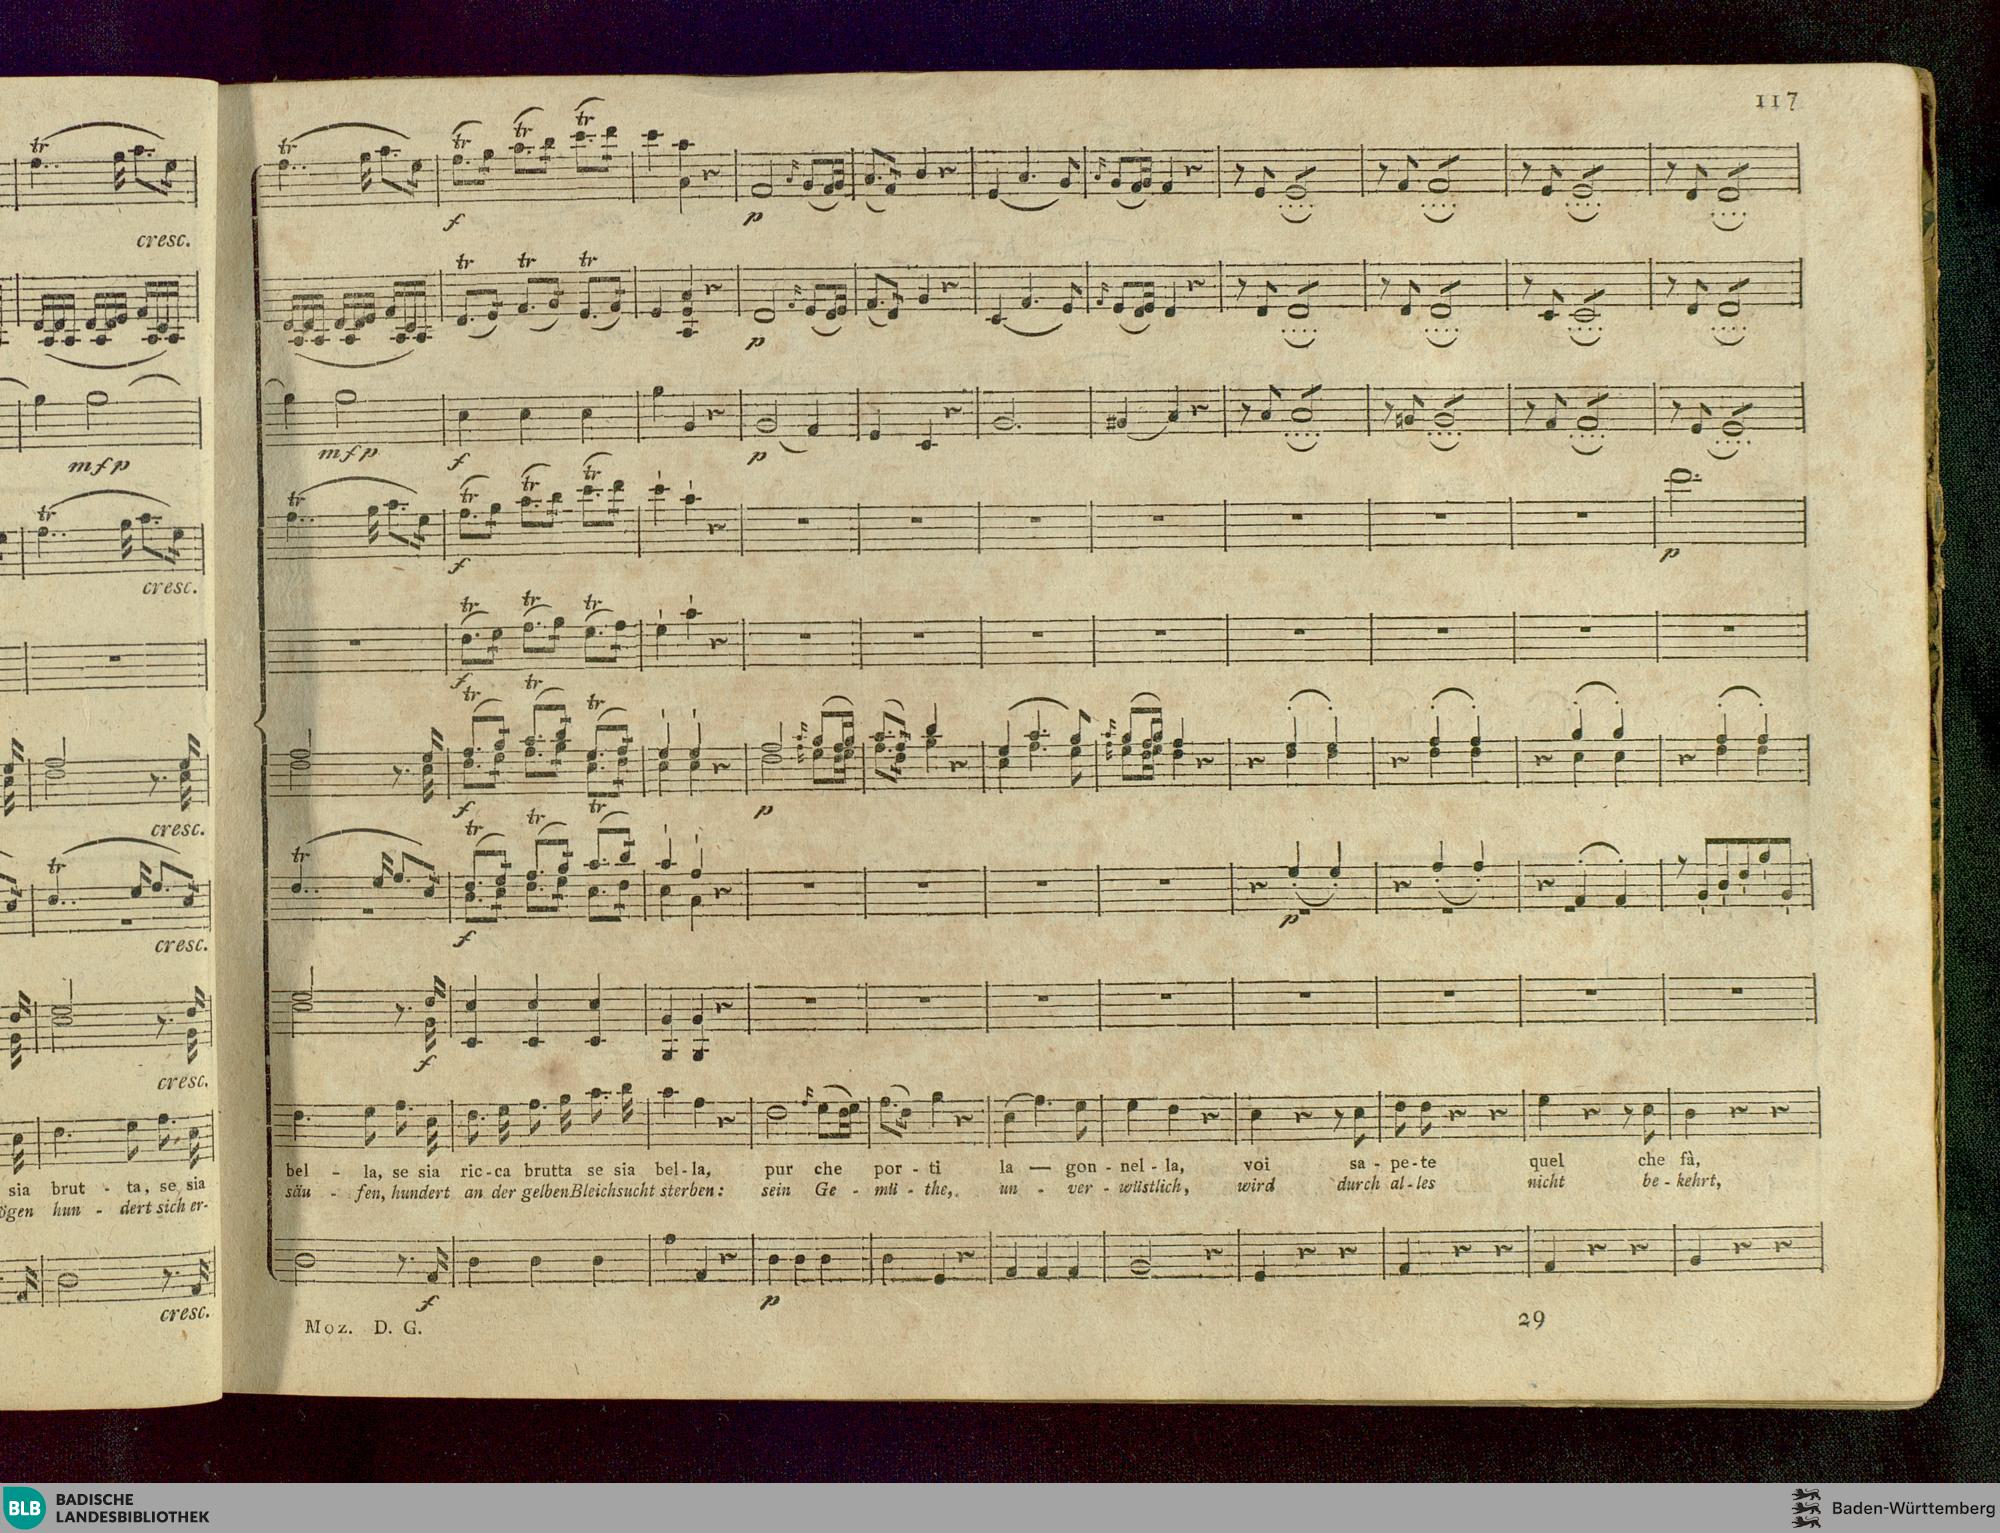 117
tr
cresc.
tr
tr tr tr
f
p
tr tr tr
p
mfp
mfp
f
p
tr
cresc.
tr
tr tr tr
f
p
tr tr tr
f
tr tr tr
cresc.
f
p
tr
cresc.
tr
tr tr tr
f
p
cresc.
f
sia brut - ta, se sia
ögen hun - dert sich er-
bel - la, se sia ric - ca brutta se sia bel - la, pur che por - ti la — gon - nel - la, voi sa - pe - te quel che fà,
säu - fen, hundert an der gelben Bleichsucht sterben: sein Ge - mü - the, un - ver - wüstlich, wird durch al - les nicht be - kehrt,
cresc.
f
p
Moz. D. G.
29
BLB BADISCHE
LANDESBIBLIOTHEK
Baden-Württemberg